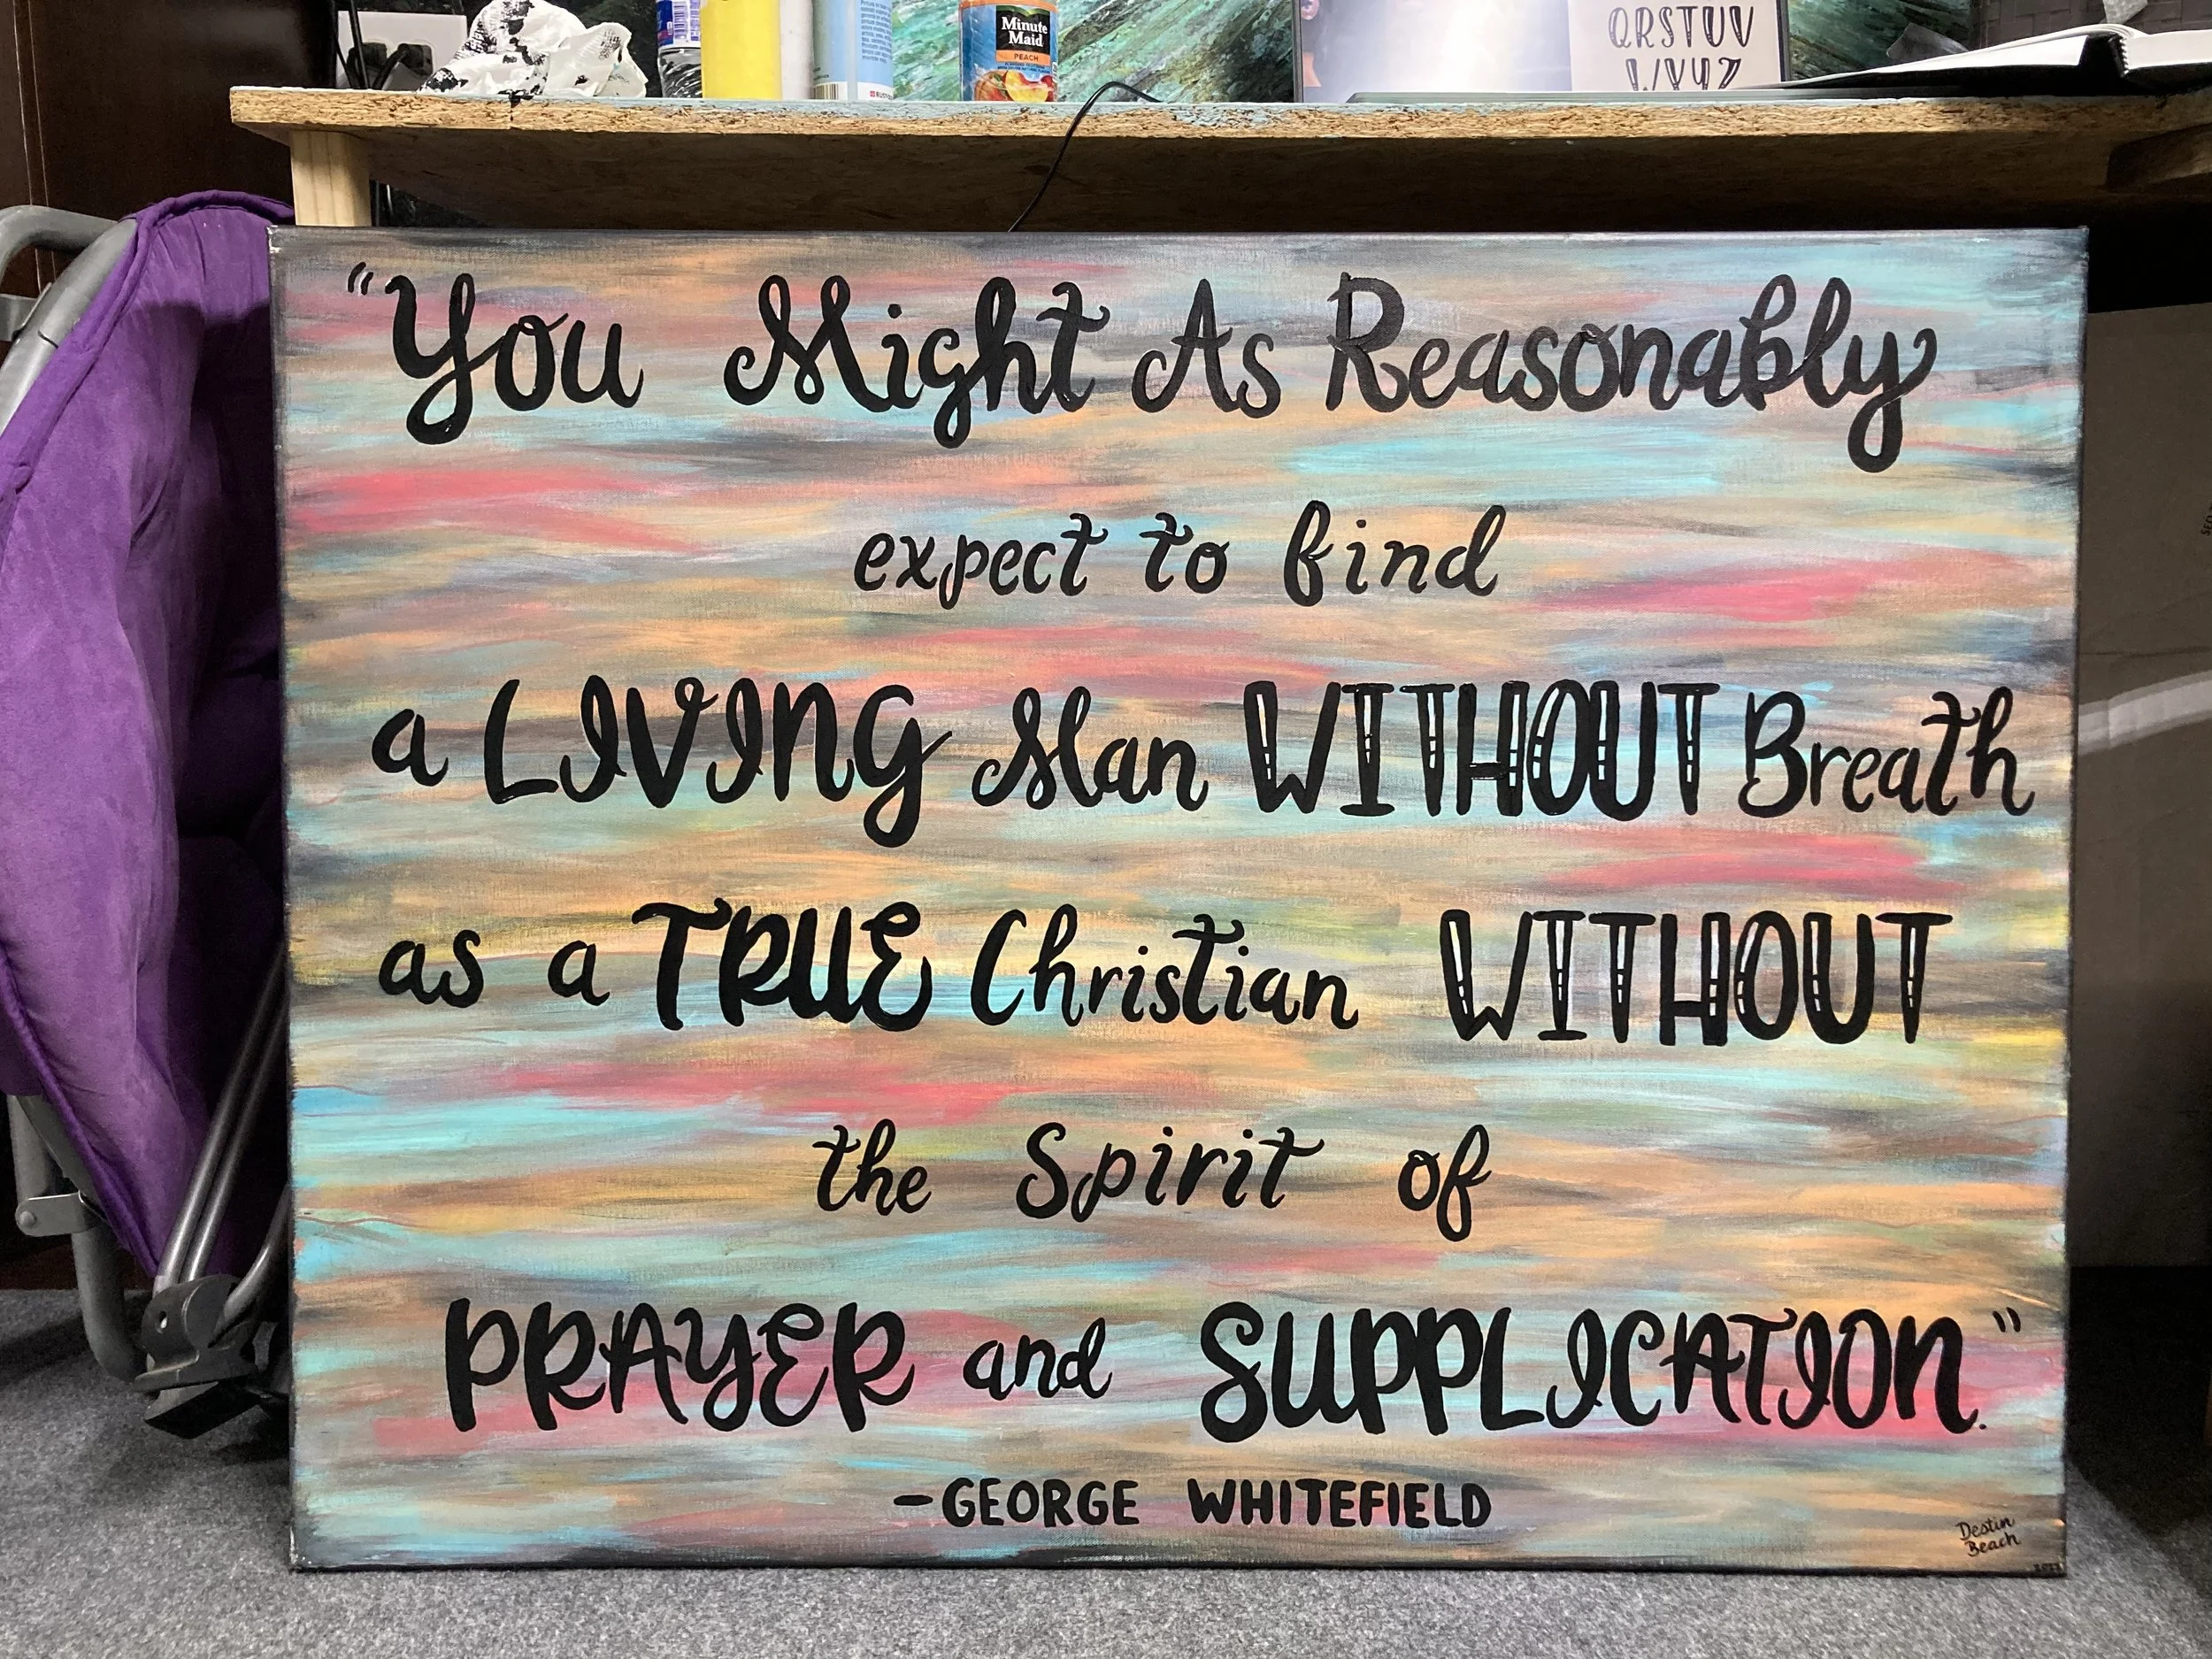 Minute
Maid
PEACH
QRSTUV
WXYZ
"You Might As Reasonably
expect to find
a LIVING Man WITHOUT Breath
as a TRUE Christian WITHOUT
the Spirit of
PRAYER and SUPPLICATION."
-GEORGE WHITEFIELD
Destin
Beach